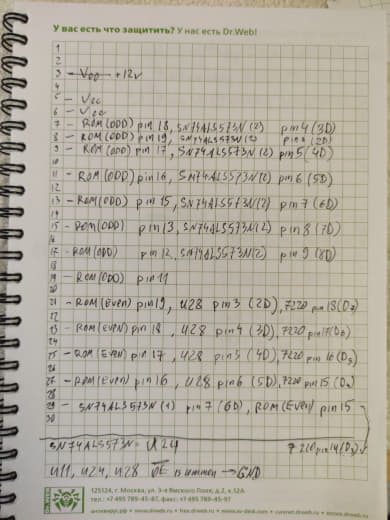 У вас есть что защитить? У нас есть Dr.Web!
1
2
3 - V +12v
4
5 - Vcc
6 - Vcc
7 - ROM(ODD) pin 18, SN74ALS573N(2) pin 4 (3D)
8 - ROM(ODD) pin 19, SN74ALS573N(2) pin (2D)
9 - ROM(ODD) pin 17, SN74ALS573N(2) pin 5 (4D)
10
11 - ROM(ODD) pin 16, SN74ALS573N(2) pin 6 (5D)
12
13 - ROM(ODD) pin 15, SN74ALS573N(2) pin 7 (6D)
14
15 - ROM(ODD) pin 13, SN74ALS573N(2) pin 8 (7D)
16
17 - ROM(ODD) pin 12, SN74ALS573N(2) pin 9 (8D)
18
19 - ROM(ODD) pin 11
20
21 - ROM(Even) pin 19, U28 pin 3 (2D), 7220 pin 18
22
23 - ROM(EVEN) pin 18, U28 pin 4 (3D), 7220 pin 17
24
25 - ROM(EVEN) pin 17, U28 pin 5 (4D), 7220 pin 16
26
27 - ROM(Even) pin 16, U28 pin 6 (5D), 7220 pin 15
28
29 - SN74ALS573N(1) pin 7 (6D), ROM(Even) pin 15
30
7220 pin 14
SN74ALS573N = U24
U11, U24, U28 OE → GND
125124, г. Москва, ул. 3-я Ямского Поля, д.2, к.12А
тел.: +7 495 789-45-87, факс: +7 495 789-45-97
антивирус.рф • www.drweb.ru • www.drweb.com